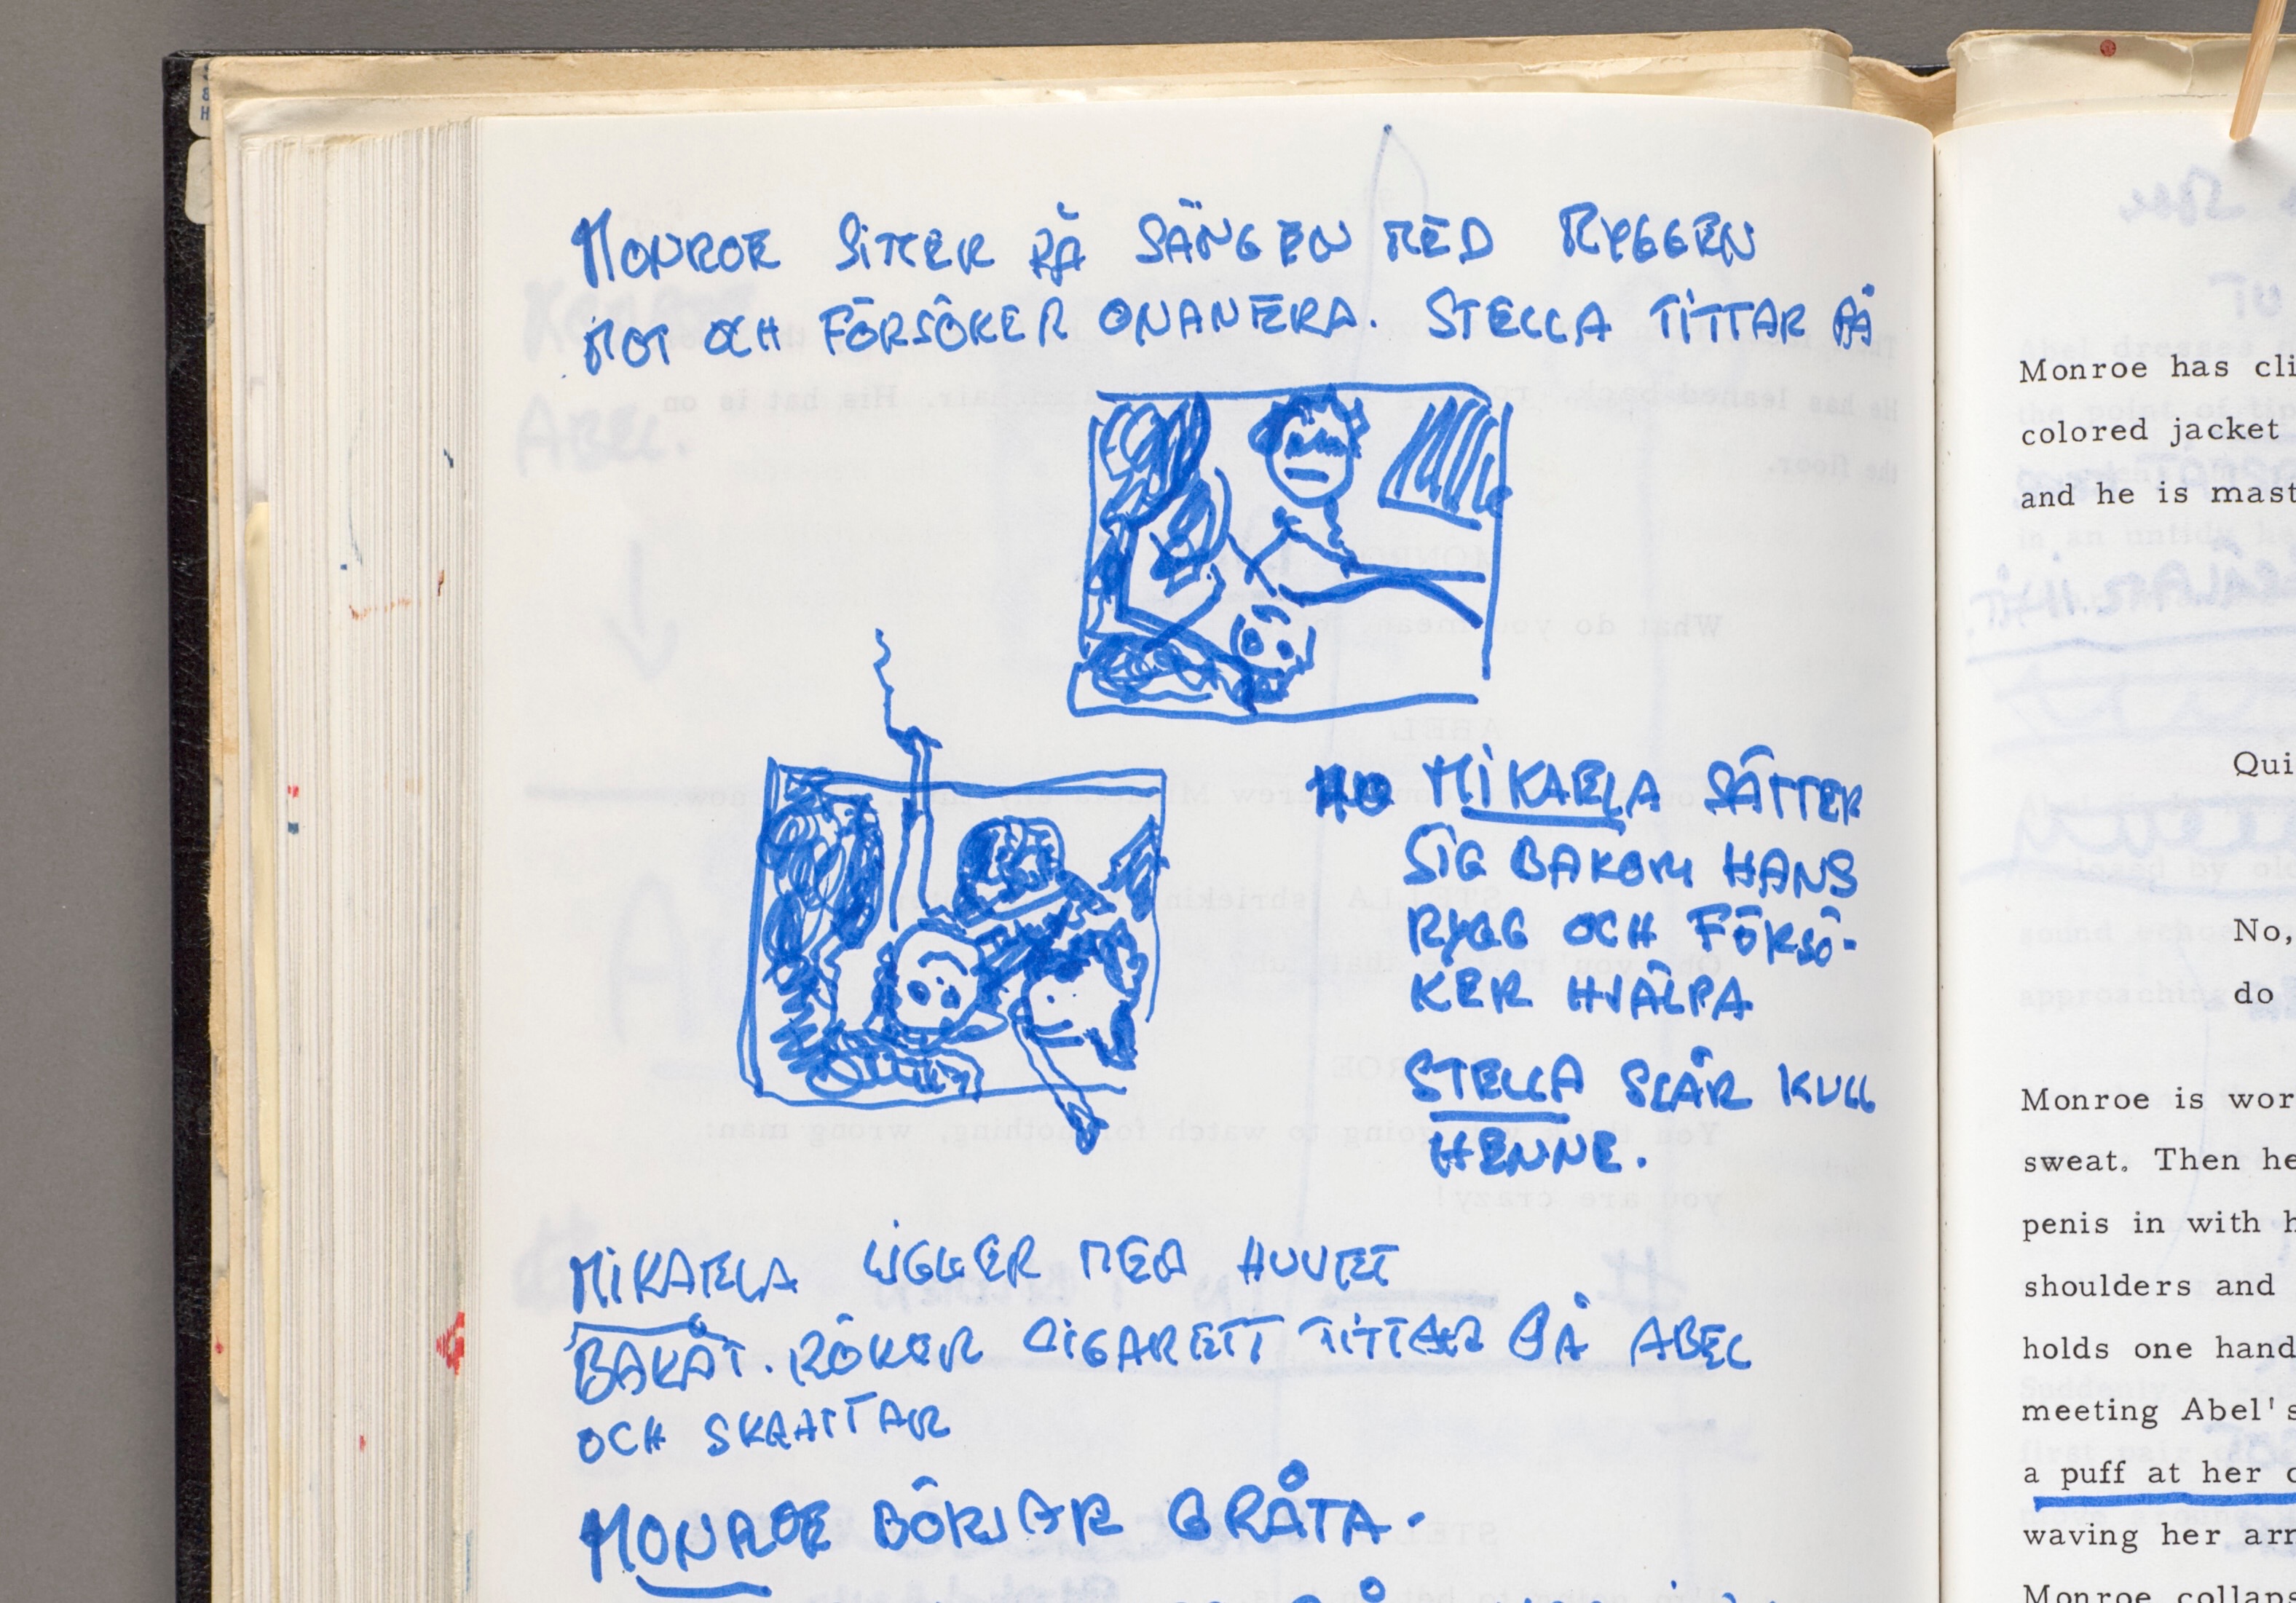 MONROE SITTER PÅ SÄNGEN MED RYGGEN
MOT OCH FÖRSÖKER ONANERA. STELLA TITTAR PÅ
MIKAELA SÄTTER
SIG BAKOM HANS
RYGG OCH FÖRSÖ-
KER HJÄLPA
STELLA SLÅR KULL
HENNE.
MIKAELA LIGGER MED HUVUET
BAKÅT. RÖKER CIGARETT TITTAR PÅ ABEL
OCH SKRATTAR
MONROE BÖRJAR GRÅTA.
Monroe has cli
colored jacket
and he is mast
Qui
No,
do
Monroe is wor
sweat. Then he
penis in with h
shoulders and
holds one hand
meeting Abel's
a puff at her c
waving her arr
Monroe collaps